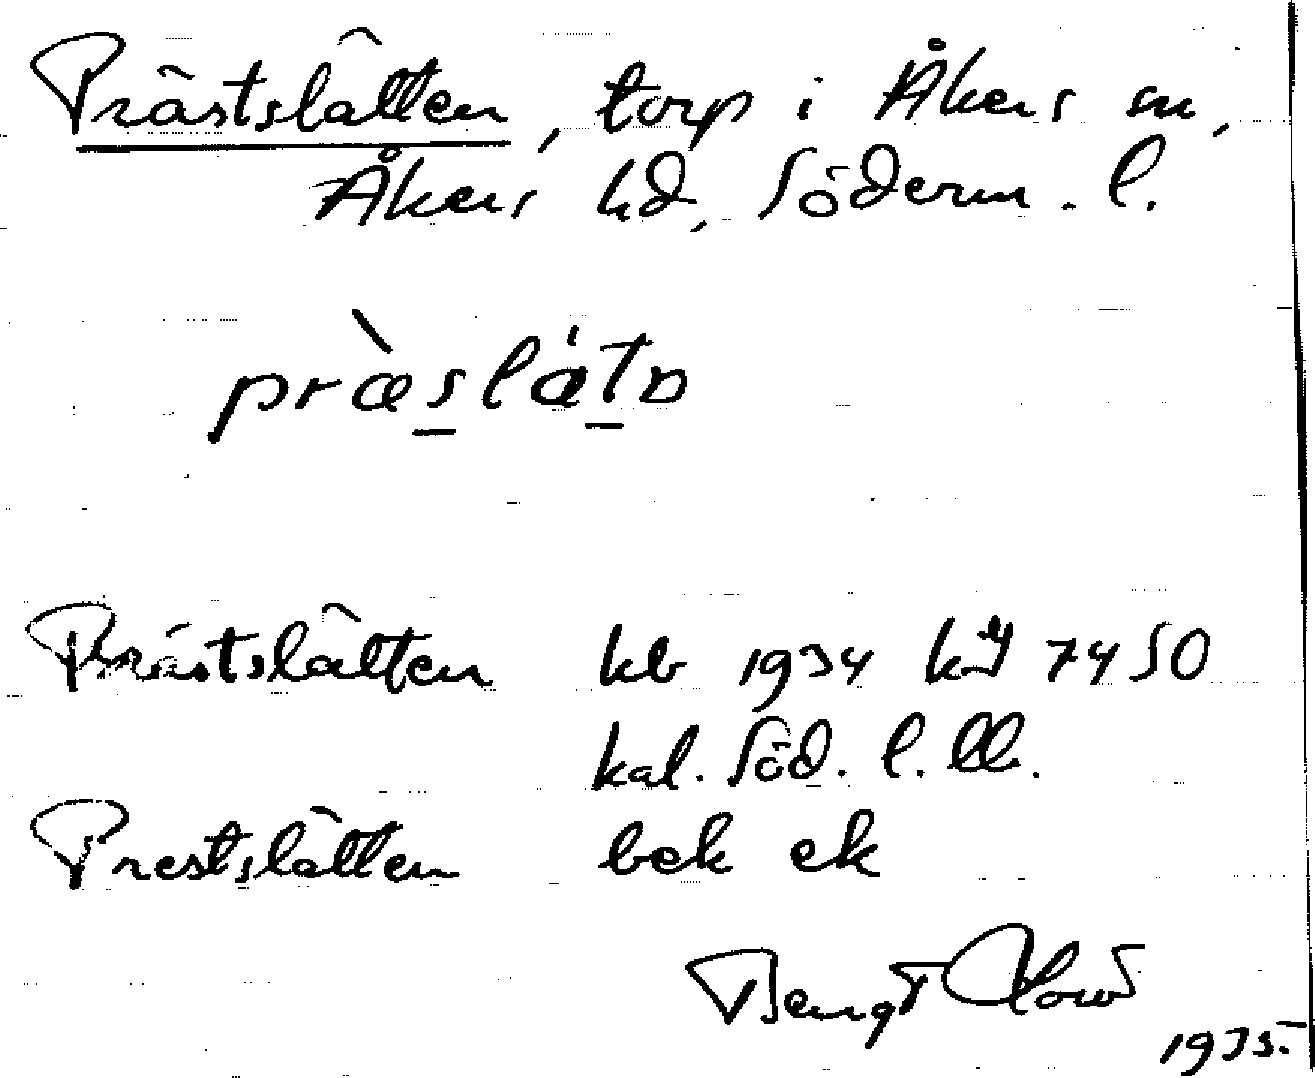 Prästslätten, torp i Åkers sn,
Åkers hd, Söderm. l.
præslátn
Prästslätten kb 1934 kij 7450
kal. Söd. l. ll.
Prestslätten bek ek
Bengt
1935.